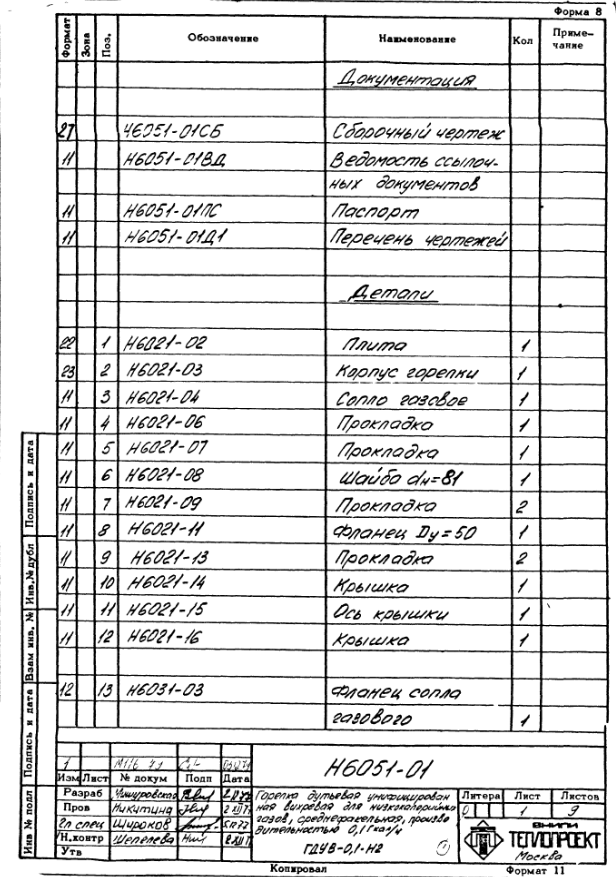 Форма 8
Формат Зона Поз. Обозначение Наименование Кол Приме-
чание
Документация
27 Н6051-01СБ Сборочный чертеж
11 Н6051-01ВД Ведомость ссылоч-
ных документов
11 Н6051-01ПС Паспорт
11 Н6051-01Д1 Перечень чертежей
Детали
22 1 Н6021-02 Плита 1
23 2 Н6021-03 Корпус горелки 1
11 3 Н6021-04 Сопло газовое 1
11 4 Н6021-06 Прокладка 1
11 5 Н6021-07 Прокладка 1
11 6 Н6021-08 Шайба dн=81 1
11 7 Н6021-09 Прокладка 2
11 8 Н6021-11 Фланец Dу=50 1
11 9 Н6021-13 Прокладка 2
11 10 Н6021-14 Крышка 1
11 11 Н6021-15 Ось крышки 1
11 12 Н6021-16 Крышка 1
12 13 Н6031-03 Фланец сопла
газового 1
Подпись и дата
Инв. № дубл
Взам инв. №
Подпись и дата
Инв № подл
Изм Лист № докум Подп Дата
Н6051-01
Разраб
Пров Никитина
Гл спец Широков
Н.контр Шепелева
Утв
Горелка дутьевая унифицирован
ная вихревая для низкокалорийных
газов, среднефакельная, произво
дительностью 0,1 Гкал/ч
ГДУВ-0,1-Н2
Литера Лист Листов
1 9
ВНИПИ
ТЕПЛОПРОЕКТ
Москва
Копировал Формат 11